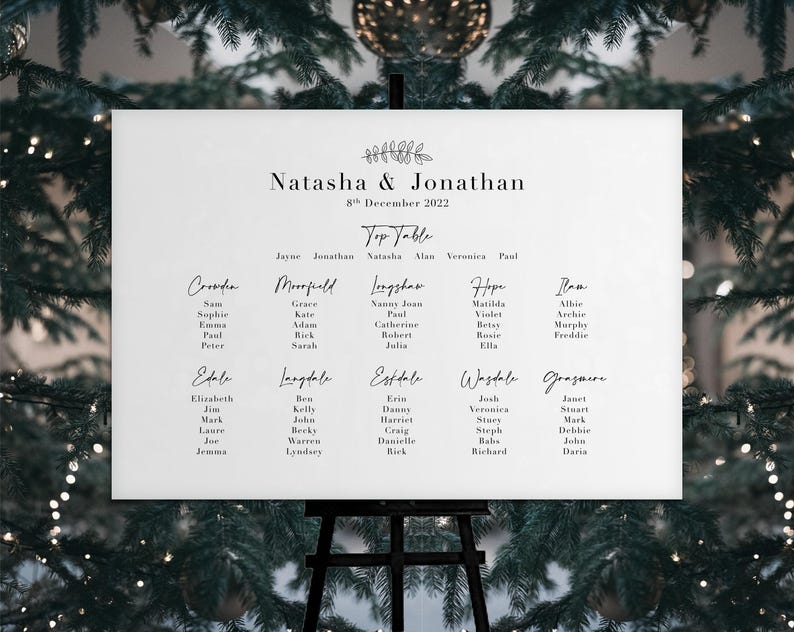 Natasha & Jonathan
8th December 2022
Top Table
Jayne Jonathan Natasha Alan Veronica Paul
Crowden
Sam
Sophie
Emma
Paul
Peter
Moorfield
Grace
Kate
Adam
Rick
Sarah
Longshaw
Nanny Joan
Paul
Catherine
Robert
Julia
Hope
Matilda
Violet
Betsy
Rosie
Ella
Ilam
Albie
Archie
Murphy
Freddie
Edale
Elizabeth
Jim
Mark
Laure
Joe
Jemma
Langdale
Ben
Kelly
John
Becky
Warren
Lyndsey
Eskdale
Erin
Danny
Harriet
Craig
Danielle
Rick
Wasdale
Josh
Veronica
Stuey
Steph
Babs
Richard
Grasmere
Janet
Stuart
Mark
Debbie
John
Daria